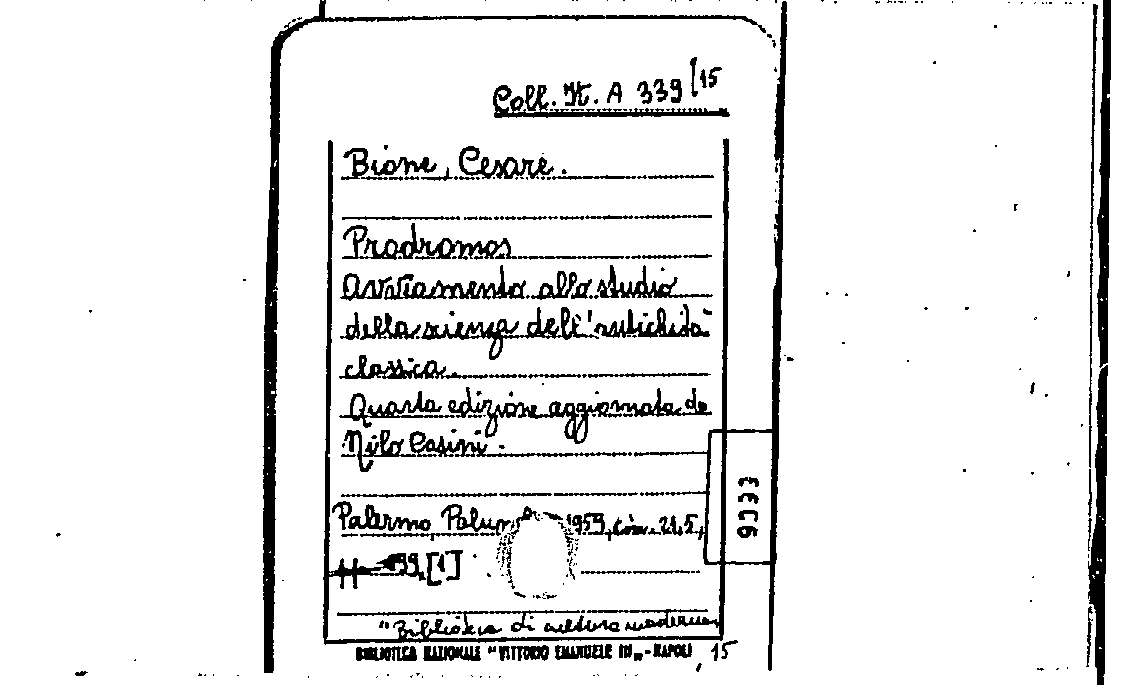 Coll. It. A 339/15
Bione, Cesare.
Prodromos
Avviamento allo studio
della scienza dell'antichità
classica.
Quarta edizione aggiornata da
Nilo Casini.
Palermo 1959, cm. 21,5,
199, [1]
"Biblioteca di cultura moderna
BIBLIOTECA NAZIONALE "VITTORIO EMANUELE III" - NAPOLI , 15